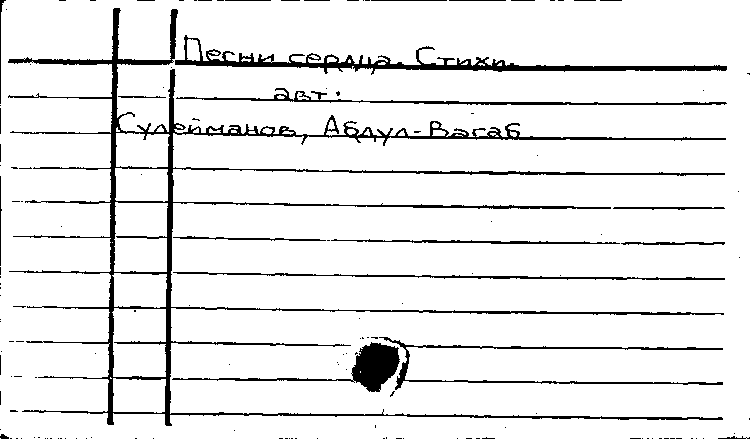 Песни сердца. Стихи.
авт:
Сулейманов, Абдул-Вагаб